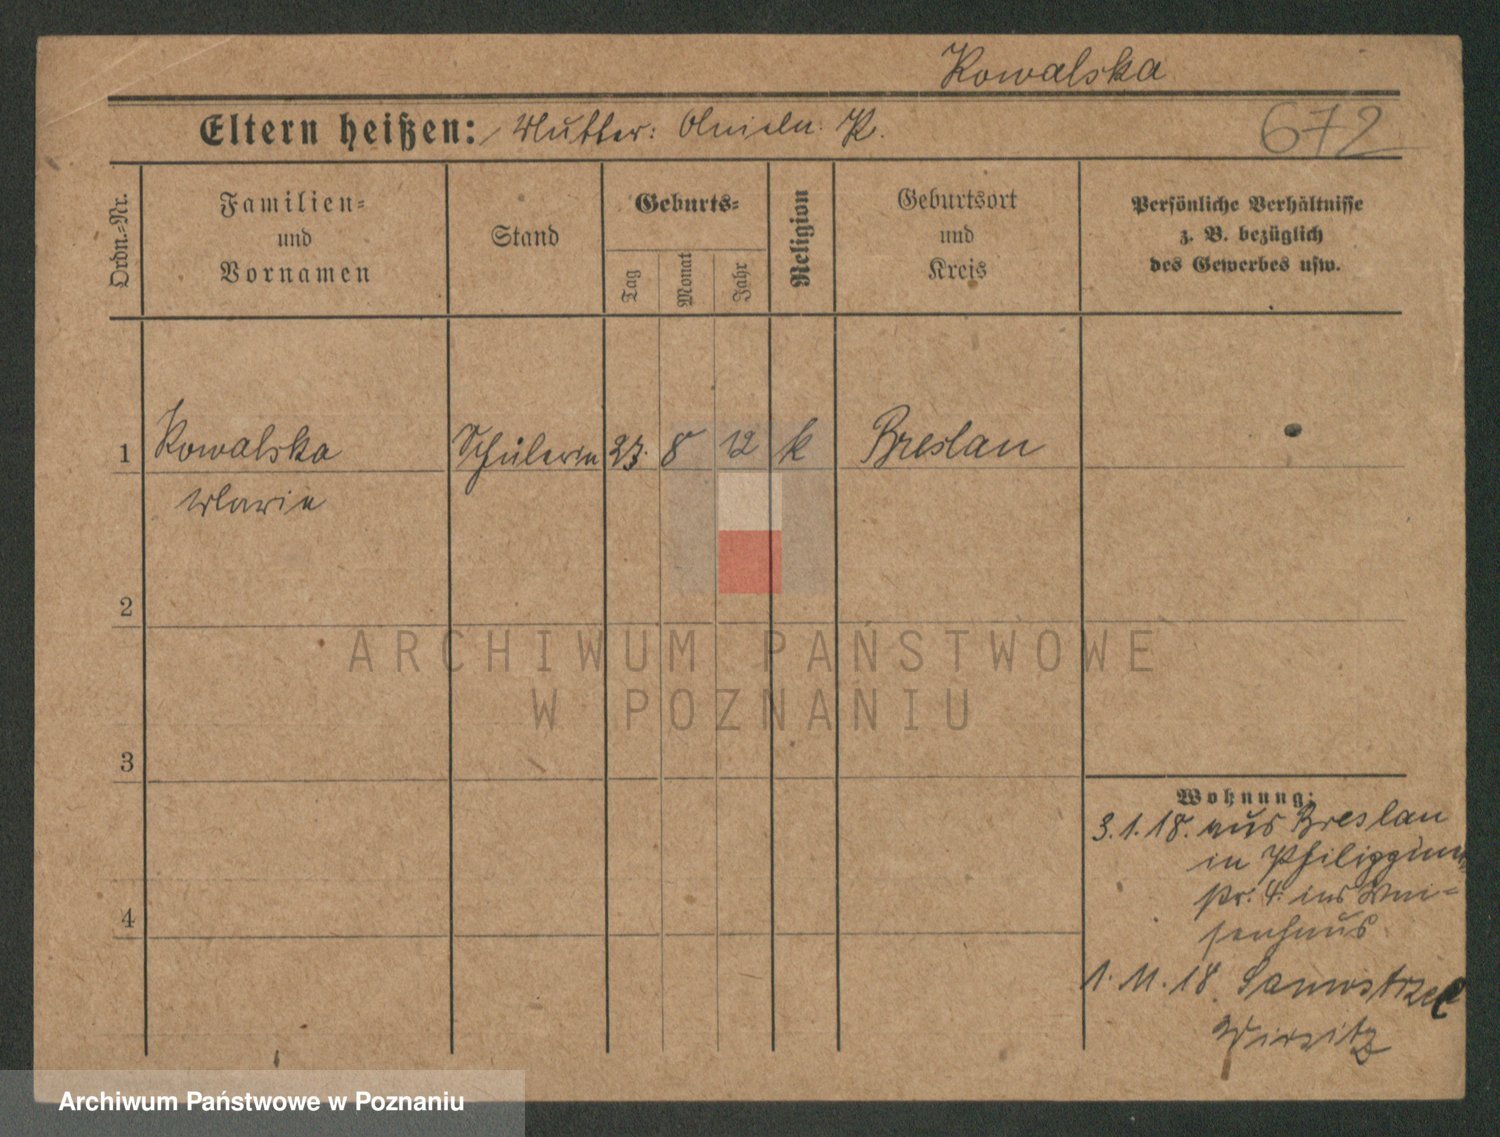 Kowalska
Eltern heißen: Mutter: K.
672
Ordn.=Nr.
Familien=
und
Vornamen
Stand
Geburts=
Tag
Monat
Jahr
Religion
Geburtsort
und
Kreis
Persönliche Verhältnisse
z. B. bezüglich
des Gewerbes usw.
1 Kowalska Schülerin 23. 8 12 k Breslau
Marie
2
ARCHIWUM PAŃSTWOWE
W POZNANIU
3
Wohnung:
3.1.18. aus Breslau
in
4. ins Wai=
senhaus
4
1.11.18. Samostrzel
Wirsitz
Archiwum Państwowe w Poznaniu